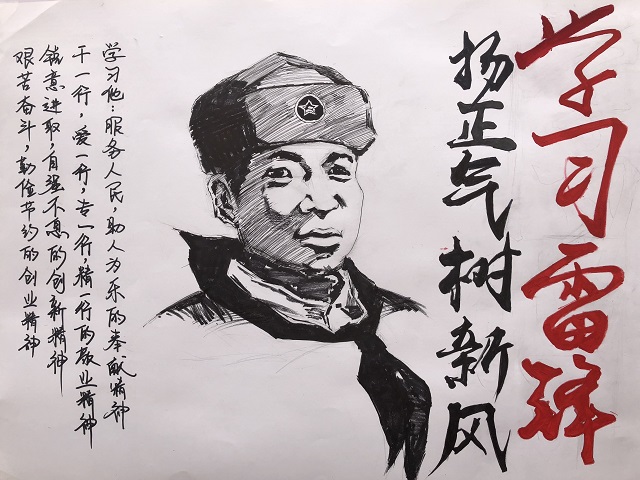 学习雷锋
扬正气树新风
学习他：服务人民，助人为乐的奉献精神
干一行，爱一行，专一行，精一行的敬业精神
锐意进取，自强不息的创新精神
艰苦奋斗，勤俭节约的创业精神